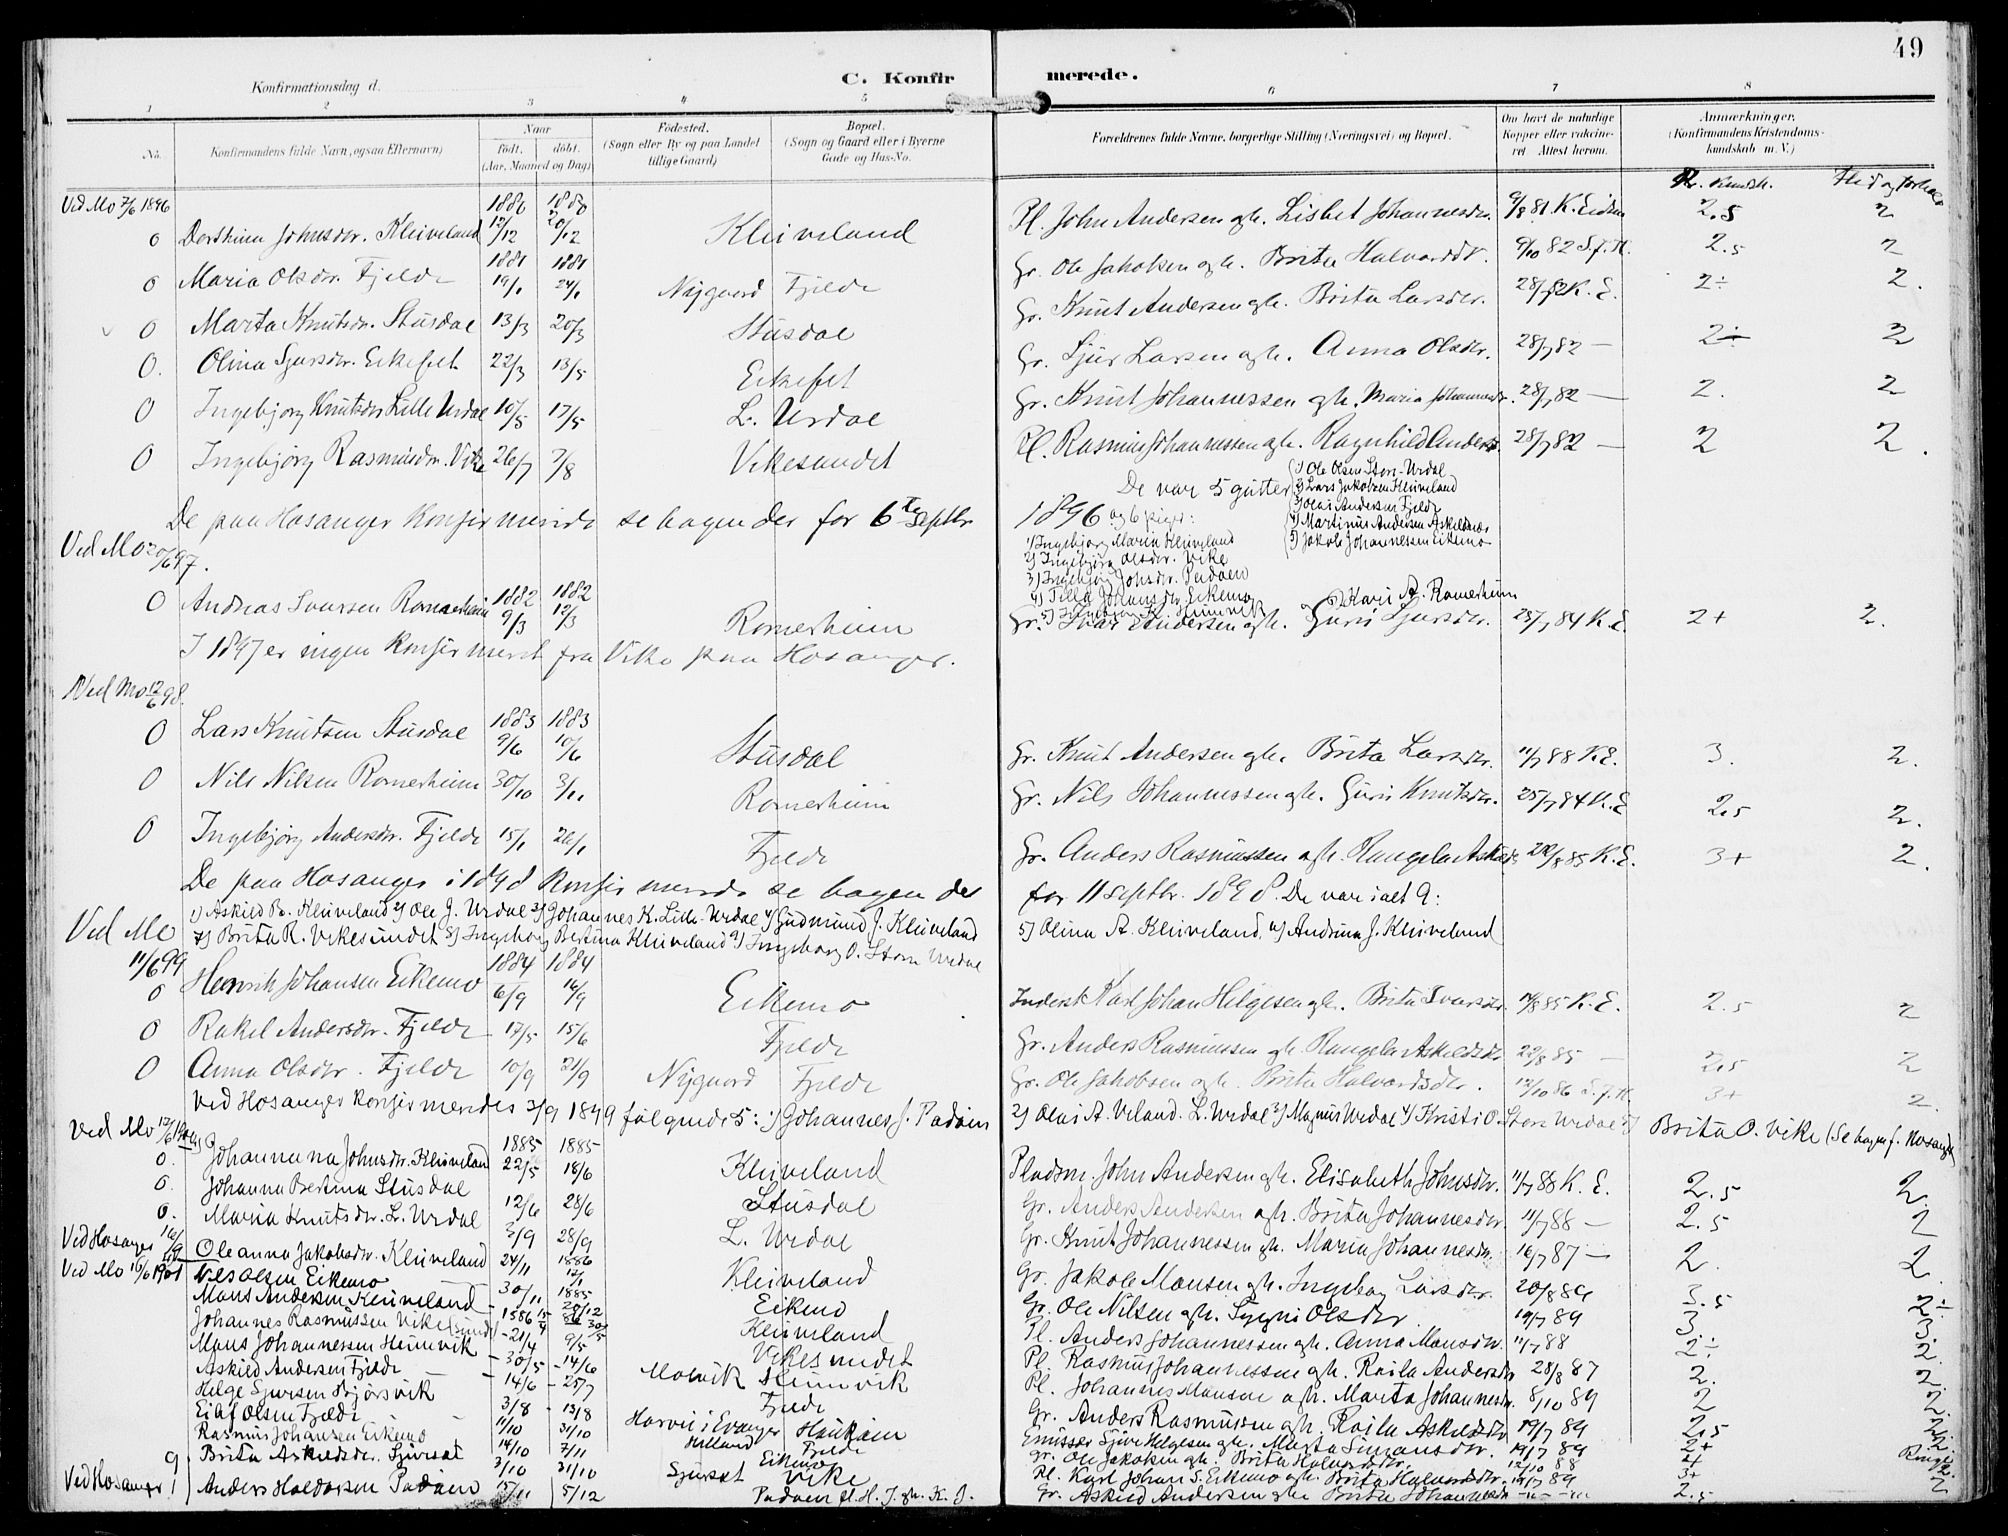 49
C. Konfirmerede.
Konfirmationsdag d.
1 2 3 4 5 6 7 8
No.
Konfirmandens fulde Navn, ogsaa Efternavn)
Naar
født. døbt.
(Aar, Maaned og Dag)
Fødested.
(Sogn eller By og paa Landet tillige Gaard)
Bopæl.
(Sogn og Gaard eller i Byerne Gade og Hus-No.
Forældrenes fulde Navne, borgerlige Stilling (Næringsvei) og Bopæl.
Om havt de naturlige Kopper eller vakcineret Attest herom.
Anmærkninger.
(Konfirmandens Kristendomskundskab m. V.)
Kr. Kundsk. Flid og Forhold
Ved Mo 7/6 1896
0 Dorthina Johnsdr. Kleiveland 1880 12/12 1880 20/12 Kleiveland Pl. John Andersen gh. Lisbet Johannesdr. 9/8 81 K. Eidsn 2.5 2
0 Maria Olsdr. Fjelde 1881 19/1 1881 24/1 Nygaard Fjelde Gr. Ole Jakobsen gh. Brita Halvardsdr. 9/10 82 S.J.H. 2.5 2
0 Marta Knutsdr. Stusdal 13/3 20/3 Stusdal Gr. Knut Andersen gh. Brita Larsdr. 28/7 82 K. E. 2÷ 2.
0. Olina Sjursdr. Eikefet 22/3 13/5 Eikefet Gr. Sjur Larsen gh. Anna Olsdr. 28/7 82 — 2÷ 2
0 Ingebjørg Knutsdr Lille Urdal 10/5 17/5 L. Urdal Gr. Knut Johannessen gh. Maria Johannesdr. 28/7 82 — 2. 2
0 Ingebjørg Rasmusdr. Vike 26/7 7/8 Vikesundet Pl. Rasmus Johannessen gh. Ragnhild Andersd. 28/7 82 — 2 2.
De paa Hosanger konfirmerede se bagen der for 6te Septbr 1896
De var 5 gutter
1) Ole Olsen Store-Urdal
2) Lars Jakobsen Kleiveland
3) Olai Andersen Fjelde
4) Martinus Andersen Askeldsnes
5) Jakob Johannessen Eikemo
og 6 piger:
1) Ingebjørg Maria Kleiveland
2) Ingebjørg Olsdr. Vike
3) Ingebjørg Johsdr. Padøen
4) Tilla Johansdr. Eikemo
5) Ingeborg K. Heimvik
6) Kari A. Romerheim
Ved Mo 20/6 97.
0 Andreas Ivarsen Romerheim 1882 9/3 1882 12/3 Romerheim Gr. Ivar Andersen gh. Guri Sjursdr. 25/7 84 K. E. 2+ 2.
I 1897 er ingen konfirmeret fra Vike paa Hosanger.
Ved Mo 12/6 98.
0 Lars Knutsen Stusdal 1883 9/6 1883 10/6 Stusdal Gr. Knut Andersen gh. Brita Larsdr. 11/7 88 K.E. 3. 2.
0 Nils Nilsen Romerheim 30/10 3/11 Romerheim Gr. Nils Johannessen gh. Guri Knutsdr. 25/7 84 K. E 2.5 2.
0 Ingebjørg Andersdr. Fjelde 15/1 26/1 Fjelde Gr. Anders Rasmussen gh. Rangela Askeds 22/8 85 K.E. 3+ 2.
De paa Hosanger i 1898 konfirmerede se bagen der for 11 septbr. 1898. De var ialt 9:
1) Askild B. Kleiveland 2) Ole J. Urdal 3) Johannes K. Lille-Urdal 4) Gudmund J. Kleiveland 5) Olina A. Kleiveland, 6) Andrina J. Kleiveland
7) Brita R. Vikesundet 8) Ingeborg Bertina Kleiveland 9) Ingeborg O. Store Urdal
Ved Mo 11/6 99
0 Henrik Johansen Eikemo 1884 6/9 1884 16/9 Eikemo Inderst Karl Johan Helgesen gh. Brita Ivarsdr. 14/8 85 K. E. 2.5 2
0 Rakel Andersdr. Fjelde 17/5 15/6 Fjelde Gr. Anders Rasmussen gh. Rangela Askeldsdr. 22/8 85 — 2.5 2
0 Anna Olsdtr. Fjelde 10/9 21/9 Nygaard Fjelde Gr. Ole Jakobsen gh. Brita Halvardsdr. 13/10 86 S.J.H. 3+ 2.
Ved Hosanger konfirmeredes 3/9 1899 følgende 5: 1) Johannes J. Padøen 2) Olai A. Veland. L. Urdal 3) Magnus Urdal 4) Kristi O. Store Urdal 5) Brita O. Vike (Se bagen f. Hosanger)
Ved Mo
0. Johannana Johnsdr. Kleiveland 1885 22/5 1885 18/6 Kleiveland Pladsm. John Andersen gh. Elisabeth Johnsdr. 11/7 88 K. E. 2.5 2.
0. Johanna Bertina Stusdal 12/6 28/6 Stusdal Gr. Anders Andersen gh. Brita Johannesdr. 11/7 88 — 2.5 2
0. Maria Knutsdr. L. Urdal 3/9 28/9 L. Urdal Gr. Knut Johannessen gh. Maria Johannesdr. 16/7 87 — 2. 2.
Ved Hosanger Oleanna Jakobsdr. Kleiveland 24/11 1886 Kleiveland Gr. Jakob Monsen gh. Ingebor Larsdr. 20/8 86 3.5 2÷
Ved Mo 16/6 1901 Nils Olsen Eikemo 30/11 1885 28/12 Eikemo Gr. Ole Nilsen gh. Sygni Olsdr. 19/7 89 3 3.
Mons Andersen Kleiveland 1886 Kleiveland Pl. Anders Johannessen gh. Anna Monsdr. 11/7 88 2÷ 2.
Johannes Rasmussen Vikesundet 21/4 9/5 Vikesundet Pl. Rasmus Johannessen gh. Raila Andersdr 28/8 87 2. 2.
Mons Johannessen Heimvik 30/5 14/6 Molvik Heimvik Pl. Johannes Monsen gh. Marta Johannesdr. 8/10 89 2 2.
Askild Andersen Fjelde 14/6 25/7 Fjelde Gr. Anders Rasmussen gh. Raila Askeldsdr 19/7 89 2.5 2.
Helge Sjursen Bjørsvik 3/8 13/8 Harvei i Evanger Haukaen Emissær Sjur Helgesen gh. Marta Simonsdr. 19/7 89 2+ 2.
Eilef Olsen Fjelde 11/10 31/10 Helland Fjelde Gr. Ole Jakobsen gh. Brita Halvardsdr. 12/10 88
Rasmus Johansen Eikemo 14/10 7/11 Eikemo Pl. Karl Johan S. Eikemo gh. Brita Halvardsdr. 19/7 89 3+ 2.
9 Brita Askeldsdr. Sjurset 3/10 31/10 Sjurset Vike Gr. Askild Andersen gh. Brita Johannesdr 2.5 2
Ved Hosanger 1 Anders Haldorsen Padøen 15/11 5/12 Padøen Pl. H. J. gh. K. J.